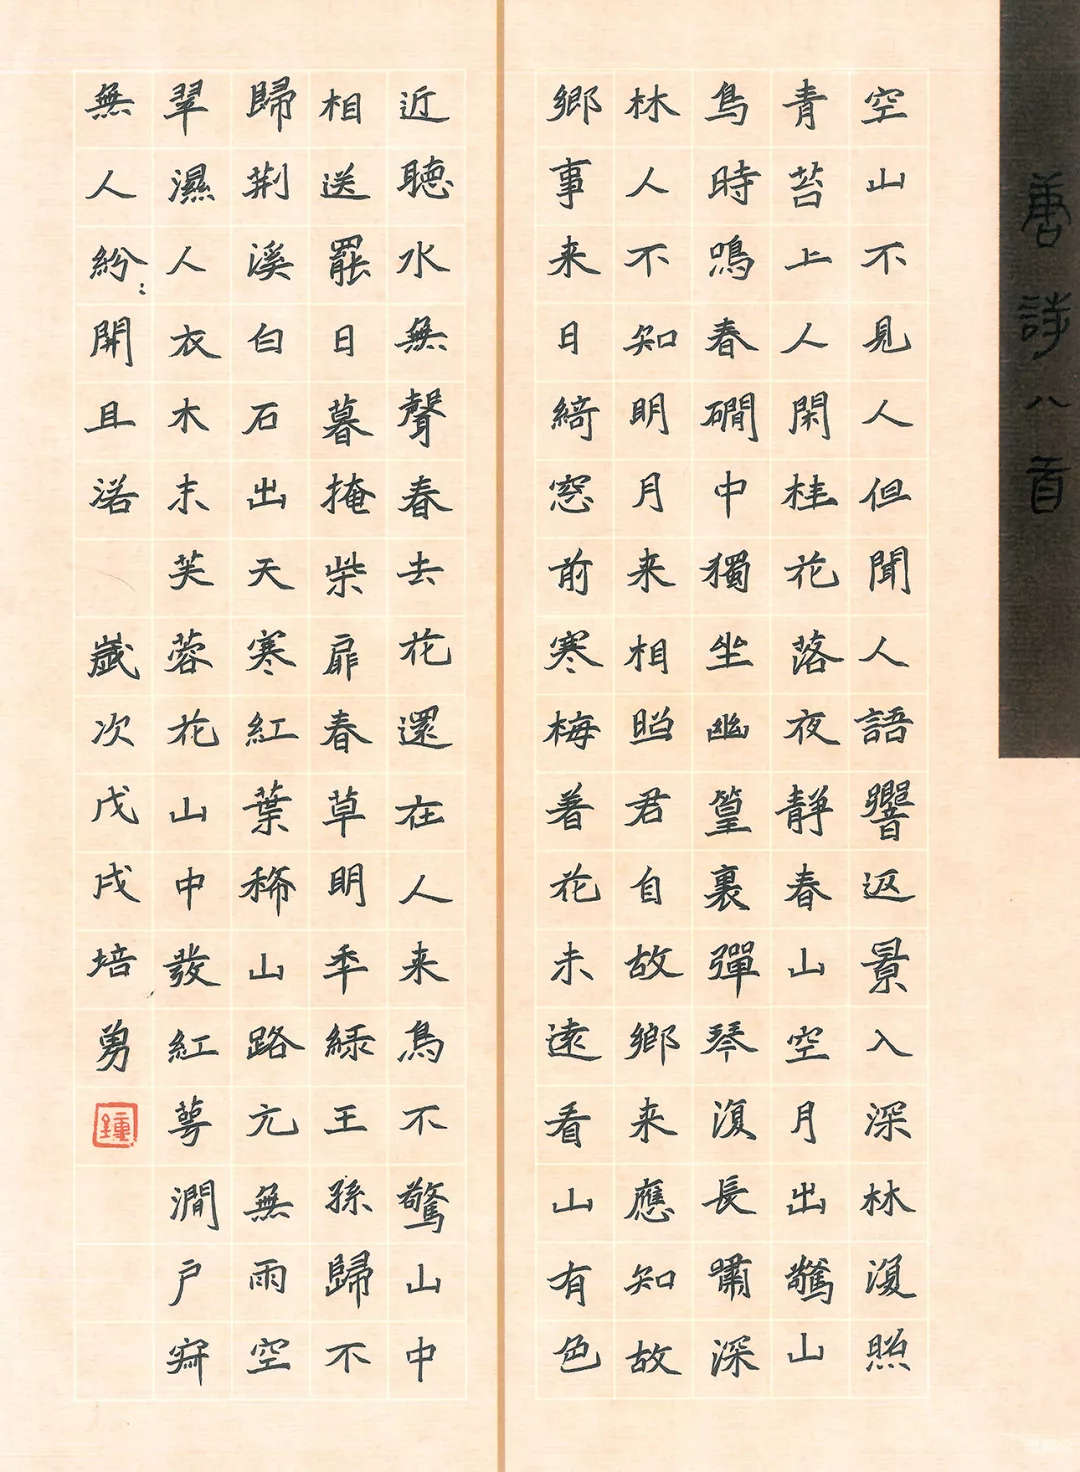 唐詩八首
空山不見人但聞人語響返景入深林復照
青苔上人閑桂花落夜静春山空月出驚山
鳥時鳴春磵中獨坐幽篁裏彈琴復長嘯深
林人不知明月来相照君自故鄉来應知故
鄉事来日綺窓前寒梅着花未遠看山有色
近聴水無聲春去花還在人来鳥不驚山中
相送罷日暮掩柴扉春草明年緑王孫歸不
歸荆溪白石出天寒紅葉稀山路元無雨空
翠濕人衣木末芙蓉花山中發紅萼澗户寂
無人紛〻開且落 歲次戊戌培勇
鍾